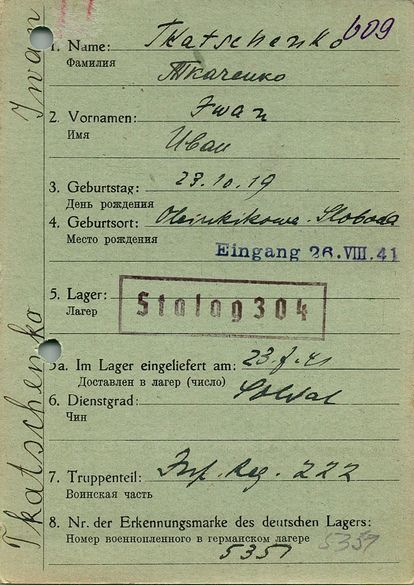 609
1. Name: Tkatschenko
Фамилия
Ткаченко
2. Vornamen: Iwan
Имя
Иван
3. Geburtstag: 23.10.19
День рождения
4. Geburtsort: Sloboda
Место рождения
Eingang 26.VIII.41
5. Lager: Stalag 304
Лагер
5a. Im Lager eingeliefert am: 41
Доставлен в лагер (число)
6. Dienstgrad: Soldat
Чин
7. Truppenteil: Inf. Reg. 222
Воинская часть
8. Nr. der Erkennungsmarke des deutschen Lagers:
Номер военнопленного в германском лагере
5351
5351
Tkatschenko Iwan